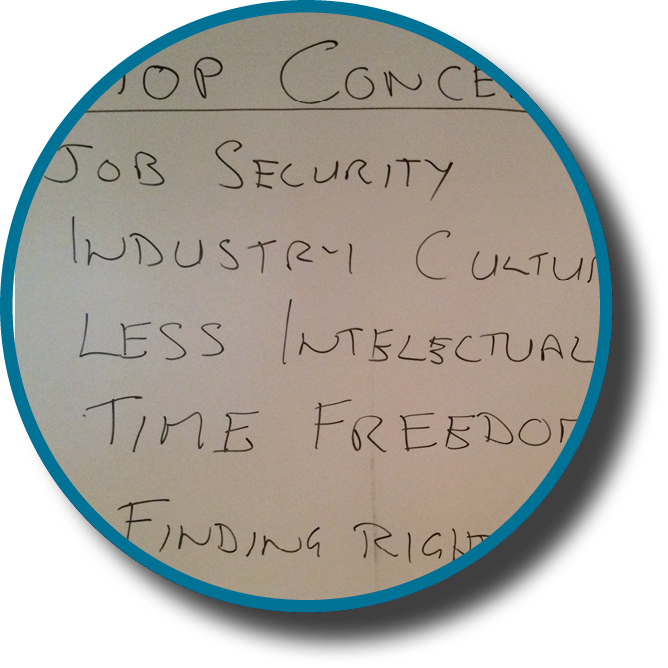 TOP CONCE
JOB SECURITY
INDUSTRY CULTUR
LESS INTELECTUAL
TIME FREEDOM
FINDING RIGHT